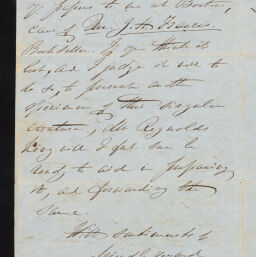 of papers to me at Boston,
care of Mr. J. H. Francis.
Bookseller. If you think it
best, and I judge it well to
do so, to procure another
specimen of this singular
creature, Mr Reynolds
King will I feel sure be
ready to aid in preparing
it, and forwarding the
same.
With sentiments of